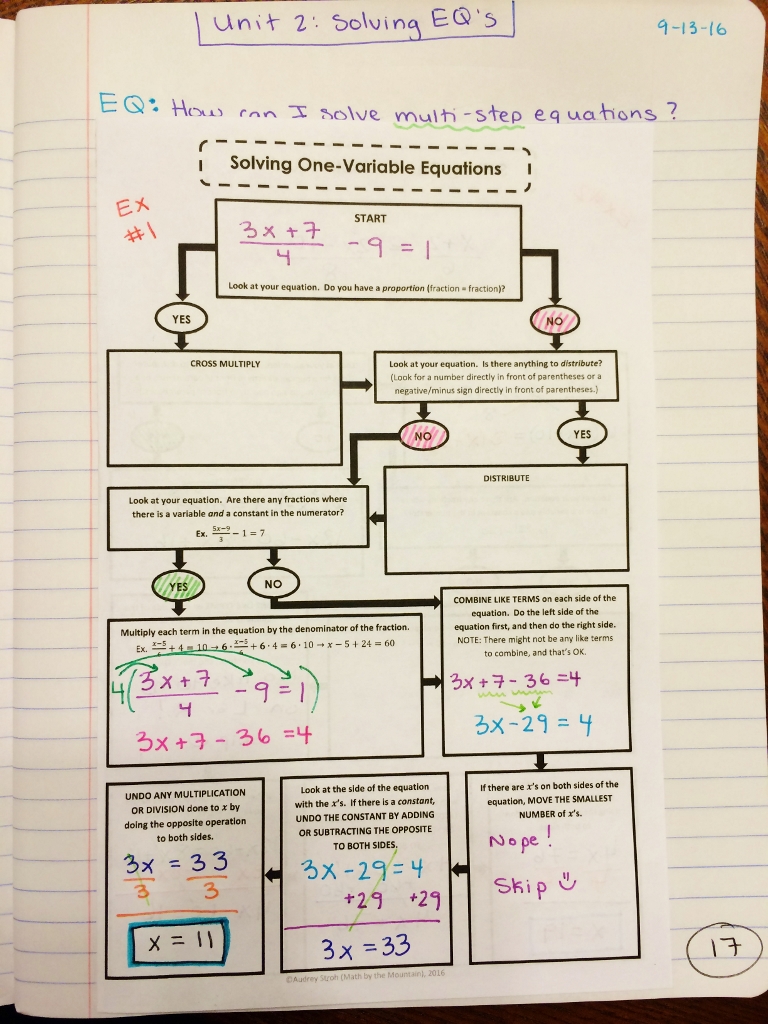 Unit 2: Solving EQ's
9-13-16
EQ: How can I solve multi-step equations?
Solving One-Variable Equations
EX
#1
START
3x+7
4
-9 = 1
Look at your equation. Do you have a proportion (fraction = fraction)?
YES
NO
CROSS MULTIPLY
Look at your equation. Is there anything to distribute?
(Look for a number directly in front of parentheses or a
negative/minus sign directly in front of parentheses.)
NO
YES
DISTRIBUTE
Look at your equation. Are there any fractions where
there is a variable and a constant in the numerator?
Ex. 5x−9/3 − 1 = 7
YES
NO
Multiply each term in the equation by the denominator of the fraction.
Ex. x−5/6 + 4 = 10 → 6 · x−5/6 + 6 · 4 = 6 · 10 → x − 5 + 24 = 60
4(3x+7
4
-9=1)
3x+7-36=4
COMBINE LIKE TERMS on each side of the
equation. Do the left side of the
equation first, and then do the right side.
NOTE: There might not be any like terms
to combine, and that's OK.
3x+7-36=4
3x-29=4
If there are x's on both sides of the
equation, MOVE THE SMALLEST
NUMBER of x's.
Nope!
Skip
Look at the side of the equation
with the x's. If there is a constant,
UNDO THE CONSTANT BY ADDING
OR SUBTRACTING THE OPPOSITE
TO BOTH SIDES.
3x-29=4
+29 +29
3x=33
UNDO ANY MULTIPLICATION
OR DIVISION done to x by
doing the opposite operation
to both sides.
3x = 33
3 3
x = 11
17
©Audrey Stroh (Math by the Mountain), 2016